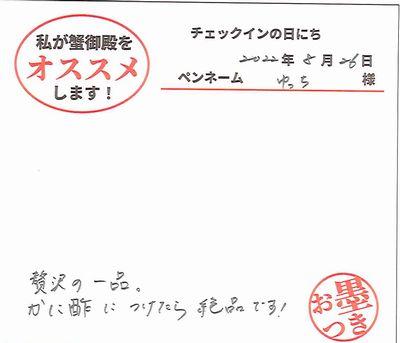 私が蟹御殿を
オススメ
します！
チェックインの日にち
2022年 8月 26日
ペンネーム ゆっち 様
贅沢の一品。
かに酢につけたら絶品です!
お墨
つき